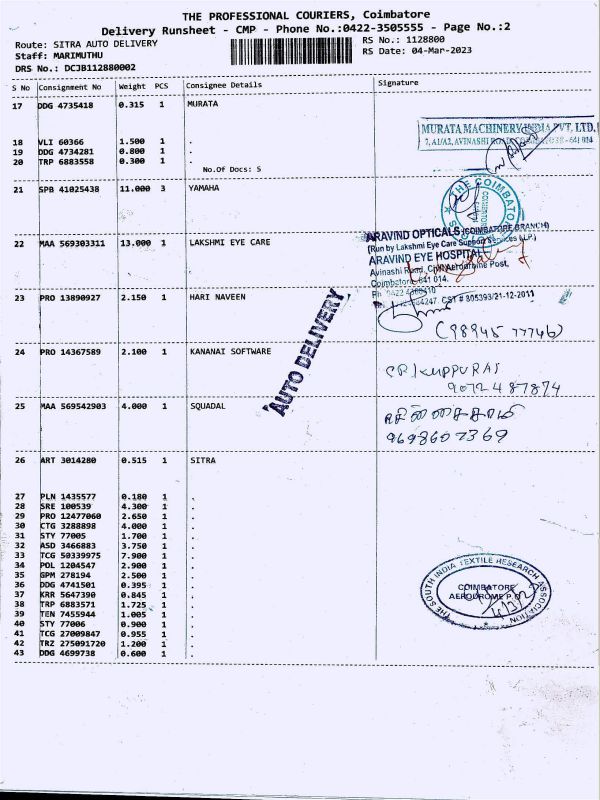 THE PROFESSIONAL COURIERS, Coimbatore
Delivery Runsheet - CMP - Phone No.:0422-3505555 - Page No.:2
Route: SITRA AUTO DELIVERY
RS No.: 1128800
Staff: MARIMUTHU
RS Date: 04-Mar-2023
DRS No.: DCJB112880002
S No Consignment No Weight PCS Consignee Details Signature
17 DDG 4735418 0.315 1 MURATA
MURATA MACHINERY INDIA PVT. LTD.
7, A1/A2, AVINASHI ROAD
18 VLI 60366 1.500 1 .
19 DDG 4734281 0.800 1 .
20 TRP 6883558 0.300 1 .
No.Of Docs: 5
21 SPB 41025438 11.000 3 YAMAHA
THE COIMBATORE
22 MAA 569303311 13.000 1 LAKSHMI EYE CARE
ARAVIND OPTICALS (COIMBATORE BRANCH)
(Run by Lakshmi Eye Care Support Services LLP.)
ARAVIND EYE HOSPITAL
Avinashi Road, Civil Aerodrome Post,
Coimbatore - 641 014.
CST # 805393/21-12-2011
23 PRO 13890927 2.150 1 HARI NAVEEN
(98945 77746)
24 PRO 14367589 2.100 1 KANANAI SOFTWARE
AUTO DELIVERY
9072487874
25 MAA 569542903 4.000 1 SQUADAL
9698607369
26 ART 3014280 0.515 1 SITRA
27 PLN 1435577 0.180 1 .
28 SRE 100539 4.300 1 .
29 PRO 12477060 2.650 1 .
30 CTG 3288898 4.000 1 .
31 STY 77005 1.700 1 .
32 ASD 3466883 3.750 1 .
33 TCG 50339975 7.900 1 .
34 POL 1204547 2.900 1 .
35 GPM 278194 2.500 1 .
36 DDG 4741501 0.395 1 .
37 KRR 5647390 0.845 1 .
38 TRP 6883571 1.725 1 .
39 TEN 7455944 1.005 1 .
40 STY 77006 0.900 1 .
41 TCG 27009847 0.955 1 .
42 TRZ 275091720 1.200 1 .
43 DDG 4699738 0.600 1 .
THE SOUTH INDIA TEXTILE RESEARCH ASSOCIATION
COIMBATORE
AERODROME P.O.